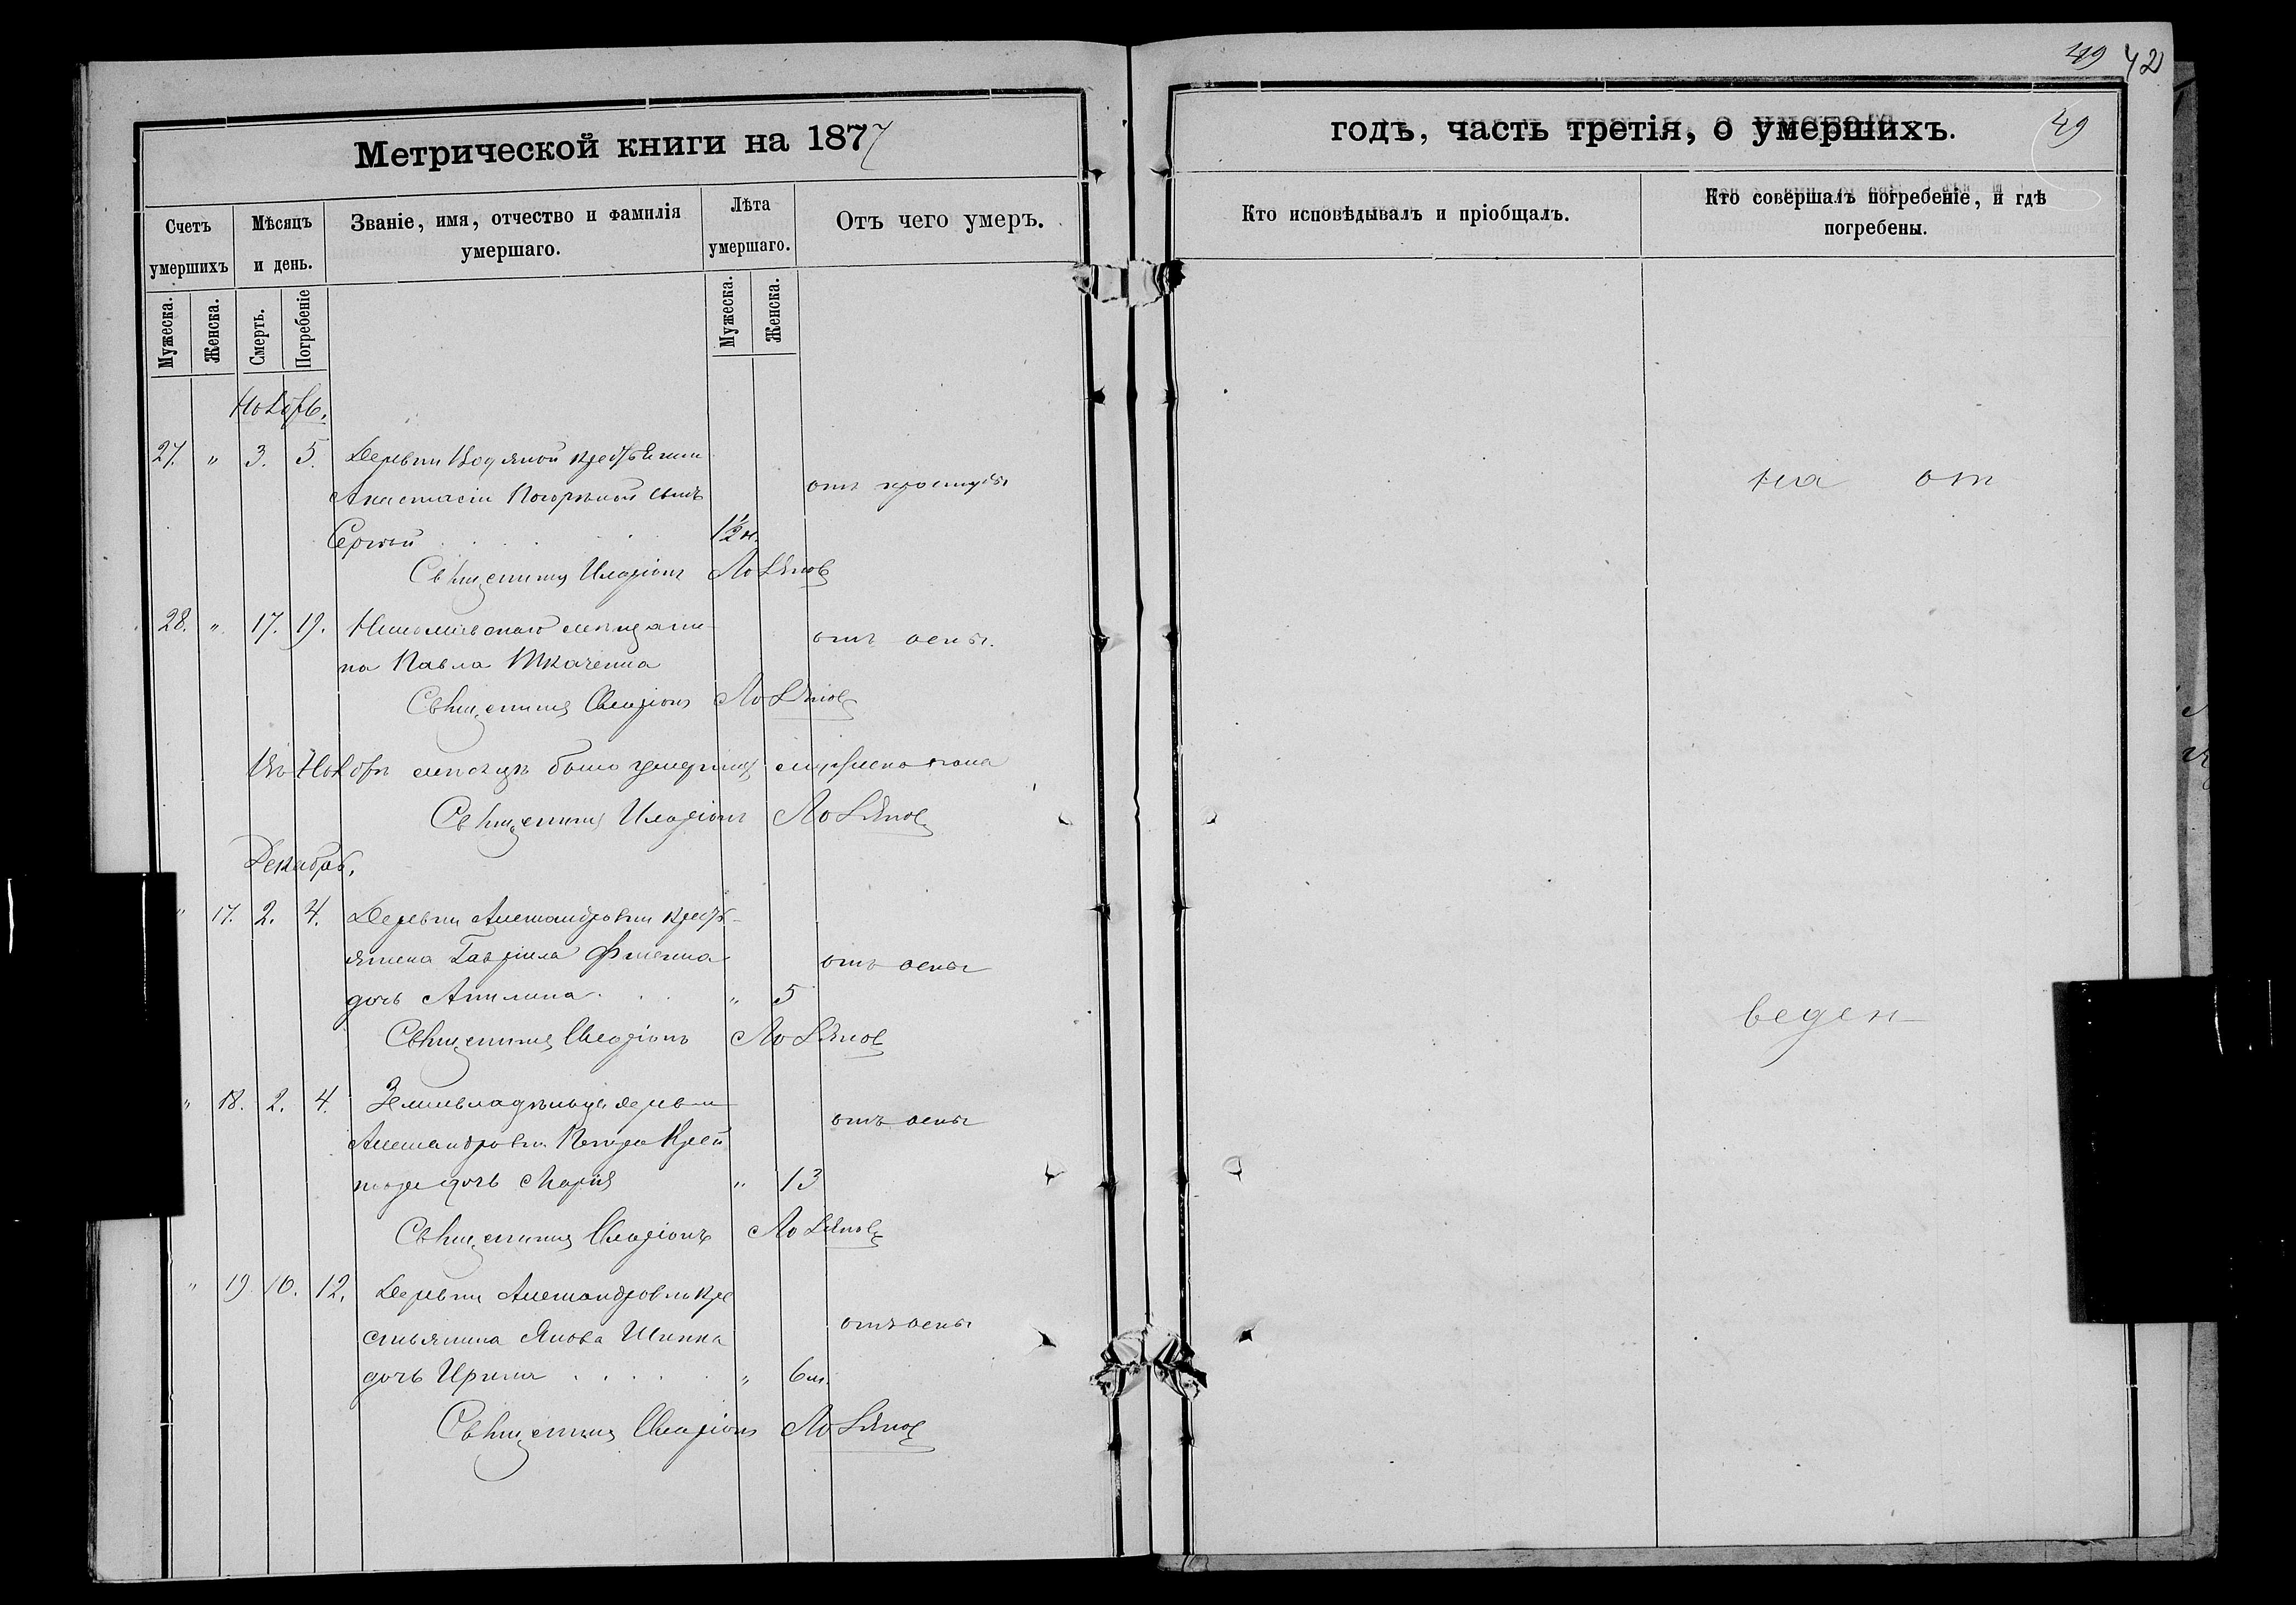 49 42
Метрической книги на 1877
годъ, часть третія, о умершихъ.
49
Счетъ умершихъ
Мѣсяцъ и день.
Званіе, имя, отчество и фамилія умершаго.
Лѣта умершаго.
Отъ чего умеръ.
Кто исповѣдывалъ и пріобщалъ.
Кто совершалъ погребеніе, и гдѣ погребены.
Мужеска.
Женска.
Смерть.
Погребеніе
Мужеска.
Женска.
Ноябрь.
27. " 3. 5. Деревни Водяной крестьянки
Анастасіи сынъ отъ простуды
Сергѣй 1½ м.
Священникъ Иларіонъ
28. " 17. 19. мѣщани-
на Павла Ткаченка отъ оспы.
Священникъ Иларіонъ
Въ Ноябрѣ мѣсяцѣ было умершихъ мужеска пола
Священникъ Иларіонъ
Декабрь.
" 17. 2. 4. Деревни Александровки кресть-
янина Гавріила отъ оспы
дочь Акилина " 5
Священникъ Иларіонъ
" 18. 2. 4. Землевладѣльца деревни
Александровки Петра отъ оспы
дочь Марія " 13
Священникъ Иларіонъ
" 19. 10. 12. Деревни Александровки кре
стьянина Якова отъ оспы
дочь Ирина " 6 м.
Священникъ Иларіонъ
на от
веден